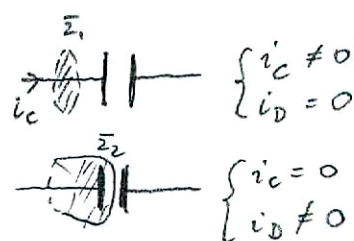 Σ₁
i_C
{ i_C ≠ 0
i_D = 0
Σ₂
{ i_C = 0
i_D ≠ 0